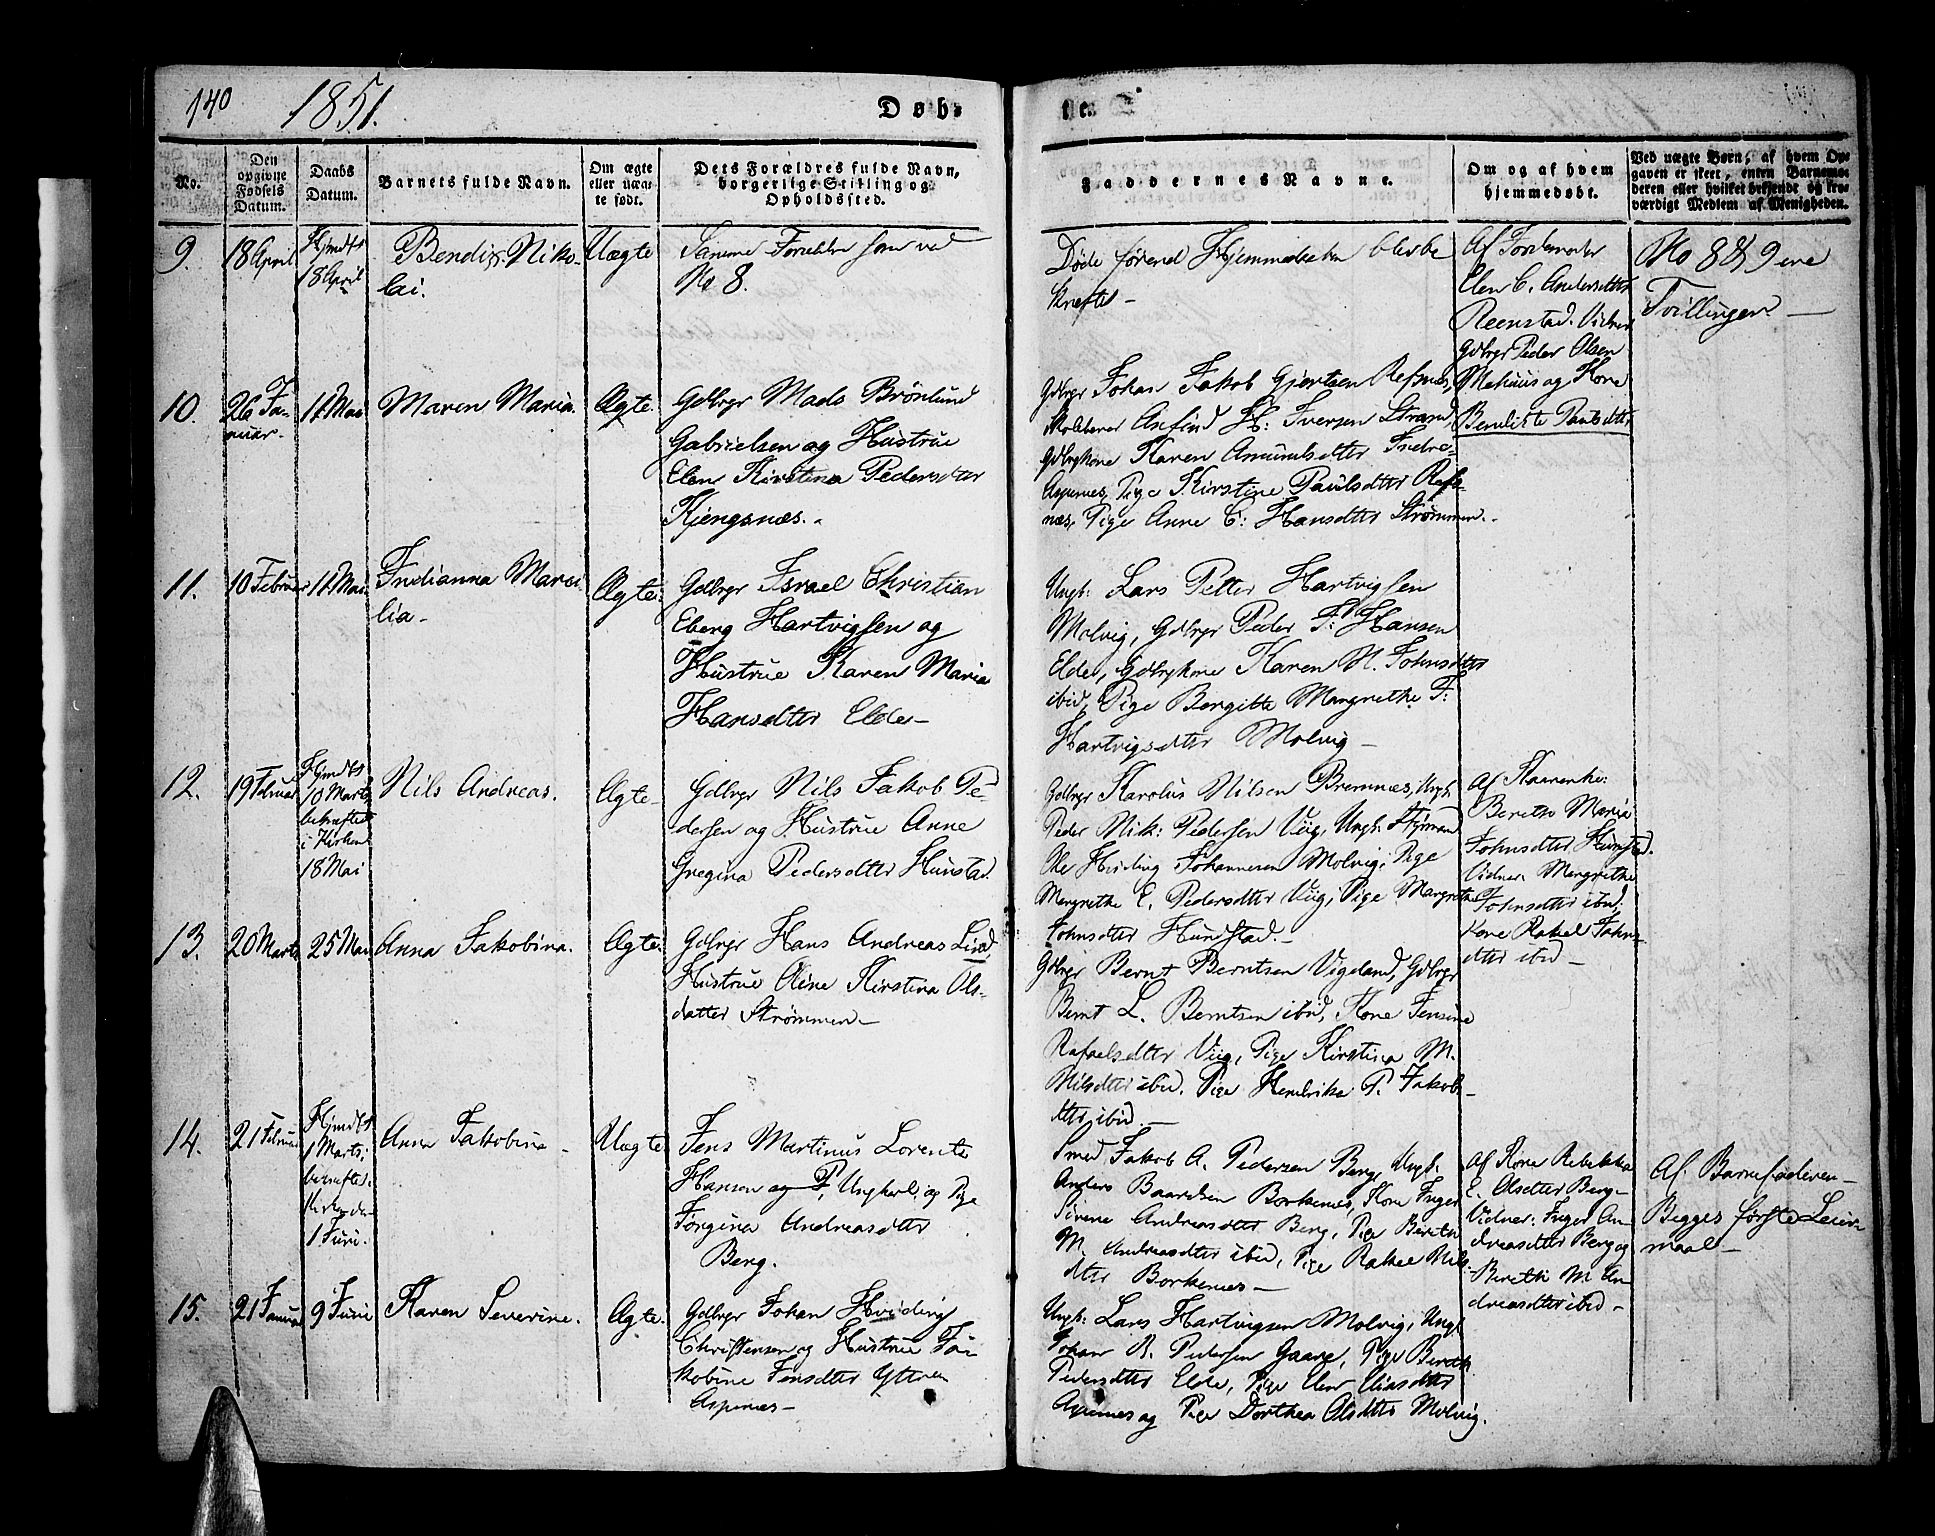 140 1851.
Døb-
te.
No.
Den opgivne Fødsels Datum.
Daabs Datum.
Barnets fulde Navn.
Om ægte eller uæg-te født.
Dets Forældres fulde Navn, borgerlige Stilling og Opholdssted.
Faddernes Navne.
Om og af hvem hjemmedøbt.
Ved uægte Børn, af hvem Op-
gaven er skeet, enten Barnemo-
deren eller hvilket bekjendt og tro-
værdigt Medlem af Menigheden.
9.
18 April
Hjmdbt
18 April
Bendix Niko-
lai.
Uægte
Samme Forældre som ved
No 8.
Døde førend Hjemmedaaben blev be
kræftet –
Af Jordemoder
Elen C. Andersdtter
Reenstad. Vidner
Gdbrgr Peder Olsen
Mahuus og Kone
Beredikte Paulsdtter
No 8 & 9 ere
Tvillinger –
10.
26 Ja-
nuar.
11 Mai
Maren Maria.
Ægte.
Gdbrgr Mads Brönlund
Gabrielsen og Hustrue
Elen Kirstina Pedersdtter
Kjengsnæs. –
Gdbrgr Johan Jakob Gjertsen Refsnæs,
Skolelærer Arfind H: Iversen Strand,
Gdbrgkone Karen Amundsdtter Indre-
Aspenes, Pige Kirstine Paulsdtter Refs-
næs, Pige Anne C: Hansdtter Strømmen.
11.
10 Februar
11 Mai
Indianna Marsi
lia –
Ægte.
Gdbrgr Israel Christian
Eberg Hartvigsen og
Hustrue Karen Maria
Hansdtter Elde –
Ungk: Lars Petter Hartvigsen
Molvig, Gdbrgr Peder J: Hansen
Elde, Gdbrgkone Karen N. Johnsdtter
ibid, Pige Bergitte Margrethe J:
Hartvigsdtter Molvig –
12.
19 Februar
Hjmdbt
10 Marts
bekræftet
i Kirken
18 Mai
Nils Andreas.
Ægte –
Gdbrgr Nils Jakob Pe-
dersen og Hustrue Anne
Gregina Pedersdtter Hunstad
Gdbrgr Karolus Nilsen Bremnæs, Ungk.
Peder Nik: Pedersen Viig, Ungk.
Ole Hviding Johannesen Molvig, Pige
Margrethe E. Pedersdtter Viig, Pige Margrethe
Johnsdtter Hundstad. –
Af
Berethe Maria
Johnsdtter Hunstad.
Vidner Margrethe
Johnsdtter ibid,
Kone Rakel Johns-
dtter ibid –
13.
20 Marts
25 Mai
Anna Jakobina.
Ægte.
Gdbrgr Hans Andreas Lind,
Hustrue Oline Kirstina Ols-
datter Strømmen –
Gdbrgr Bernt Berntsen Vigeland, Gdbrgr
Bernt L. Berntsen ibid, Kone Jensine
Rafaelsdtter Viig, Pige Kirstina M.
Nilsdtter ibid. Pige Hendrika P. Jakob-
dtter ibid –
14.
21 Februar
Hjmdbt
1 Marts,
bekræftet
Kirken
1 Juni.
Anna Jakobina –
Uægte
Jens Martinus Lorents
Hansen og P, Ungkarl, og Pige
Jørgina Andreasdtter
Berg.
Smed Jakob A. Pedersen Berg, Ungk.
Anders Baardsen Borkenes, Kone Inger
Sirene Andreasdtter Berg, Pige Bereth
M. Andreasdtter ibid, Pige Rakel Nils-
dtter Borkenes –
Af Kone Rebekka
E. Olsdtter Berg –
Vidner: Inger An-
dreasdtter Berg og
Bereth M An-
dreasdtter ibid –
Af Barnefaderen –
Begges første Leier-
maal –
15.
21 Januar
9 Juni
Karen Severine.
Ægte.
Gdbrgr Johan Hviding
Christensen og Hustrue Ja-
kobine Jensdtter Ytren
Aspenæs –
Ungk: Lars Hartvigsen Molvig, Ungk
Johan A. Pedersen Gaare, Pige Bereth
Pedersdtter Elde, Pige Elen Eliasdtter
Aspenes og Pige Dorthea Olsdtter Molvig.